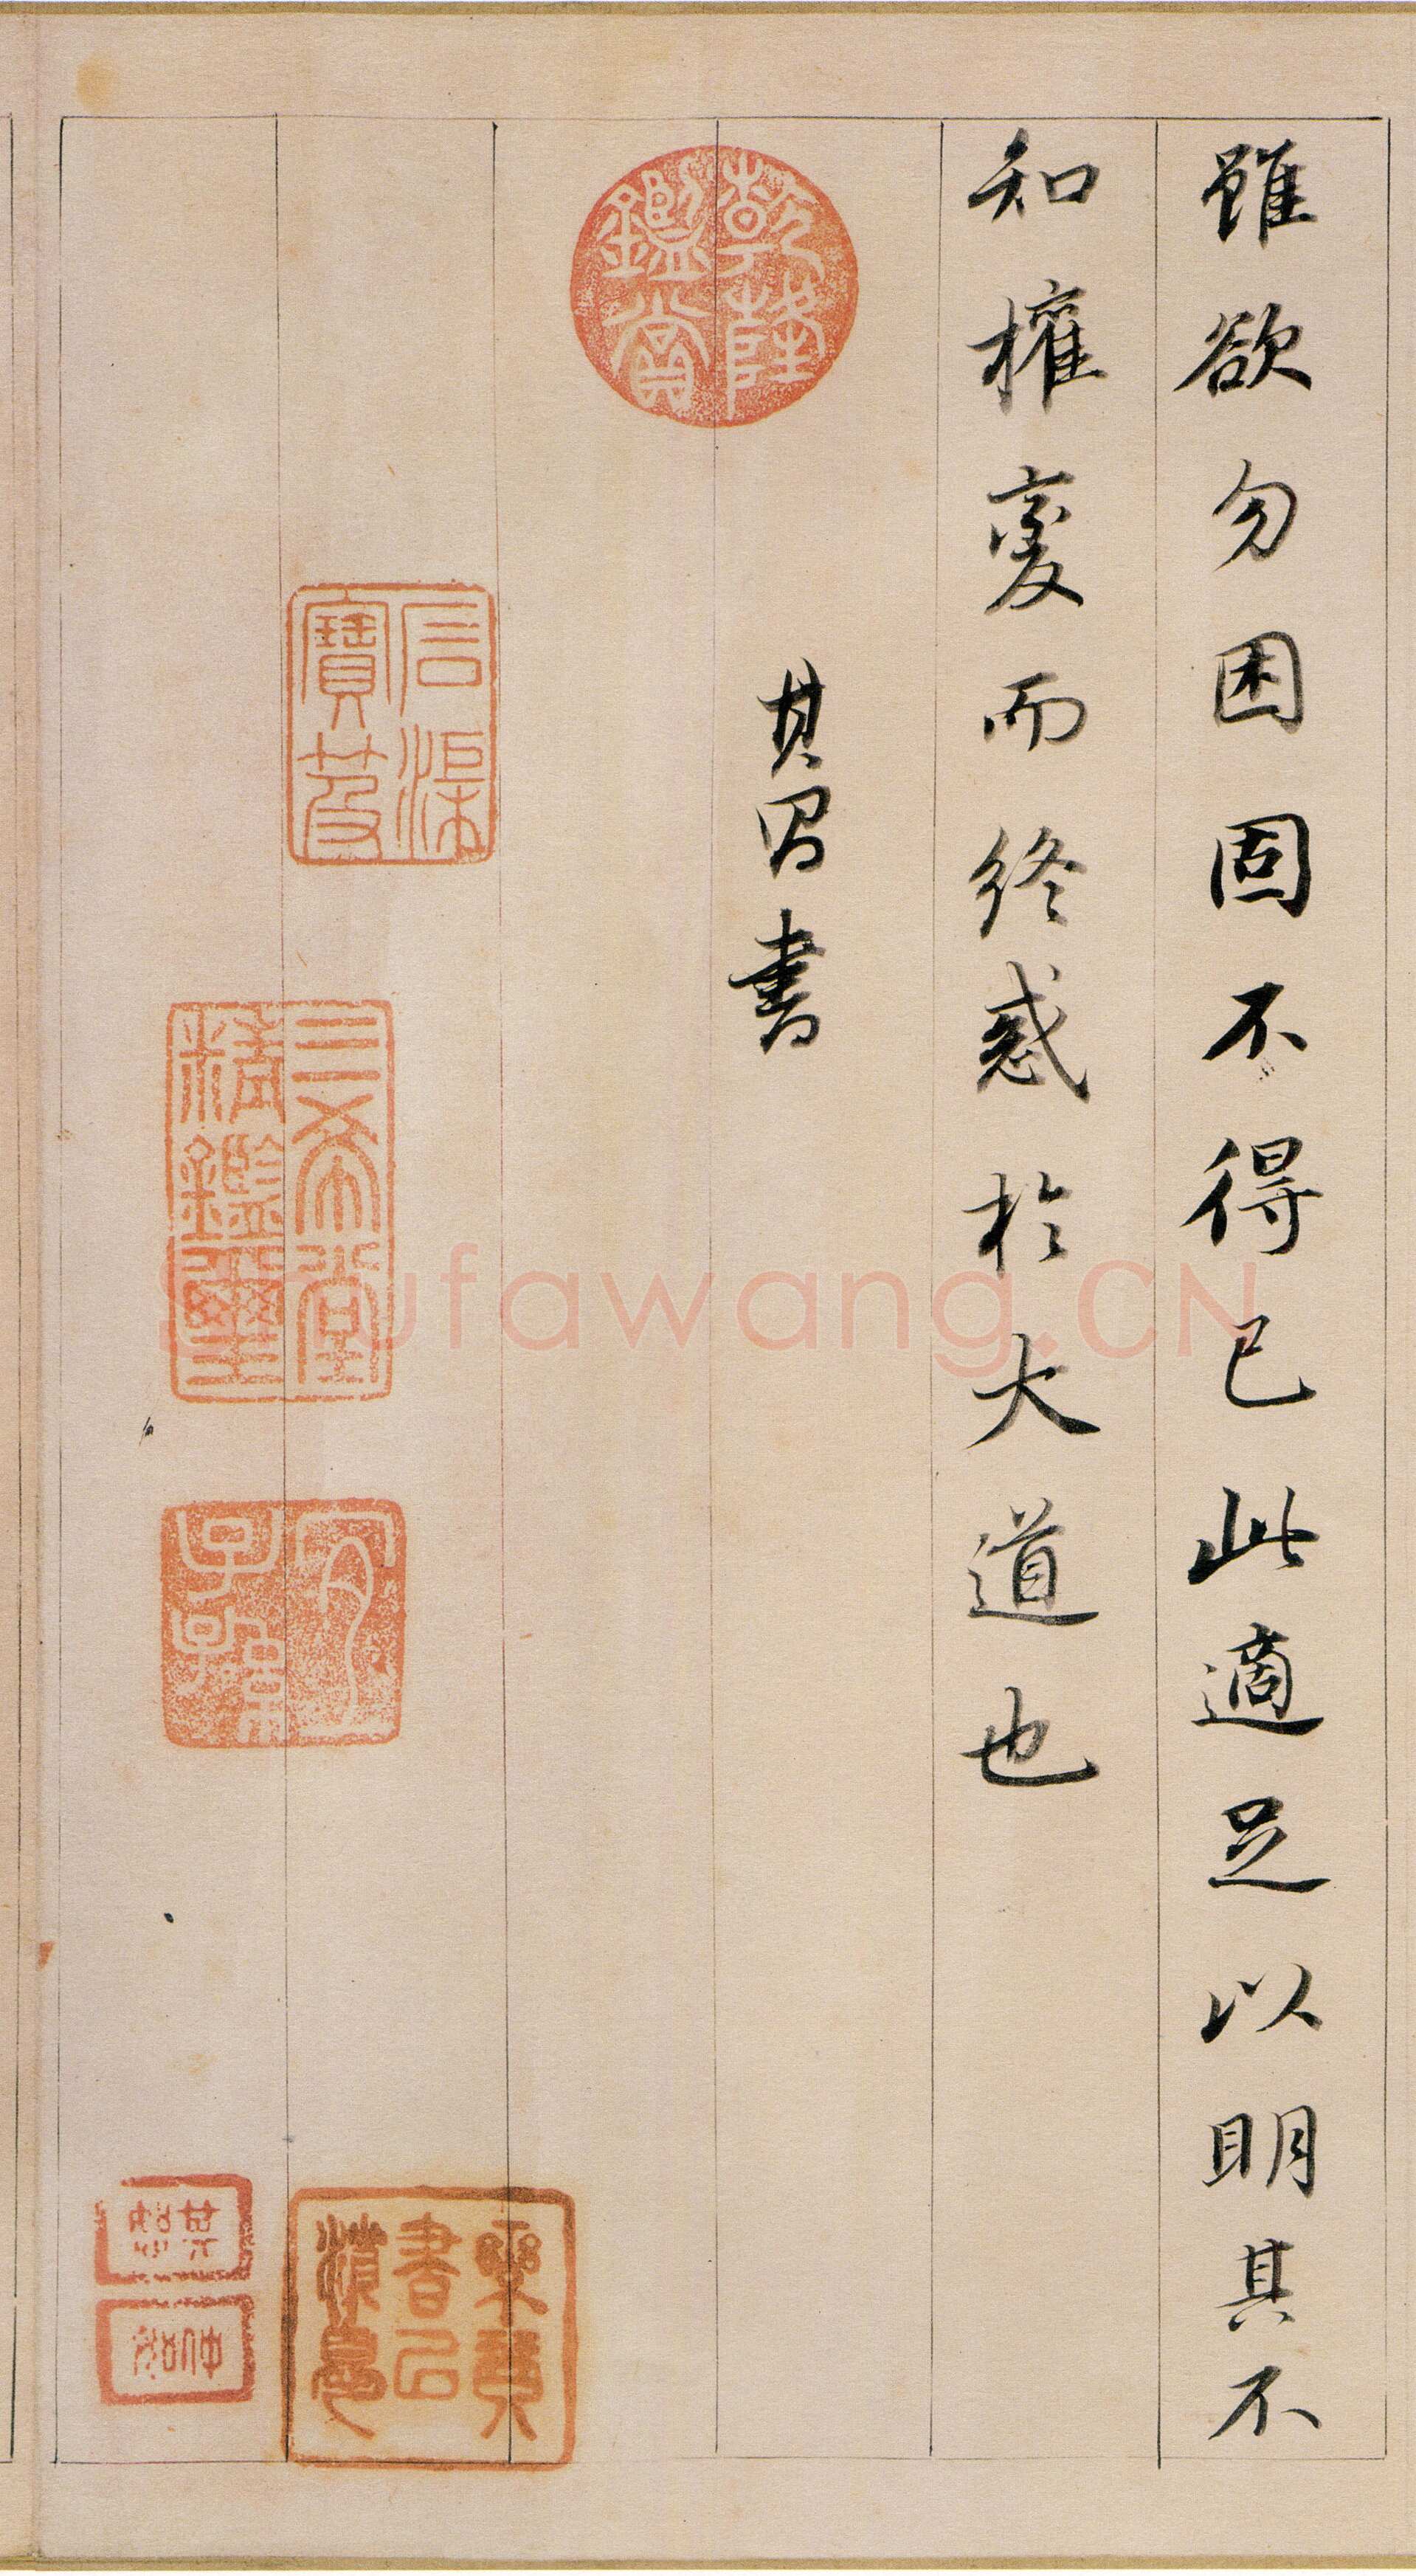 雖欲勿困固不得已此適足以明其不
知權變而終惑於大道也
其昌書
乾隆鑑賞
信渠寶笈
三希堂精鑑璽
宜子孫
樂賢書屋
Shufawang.CN